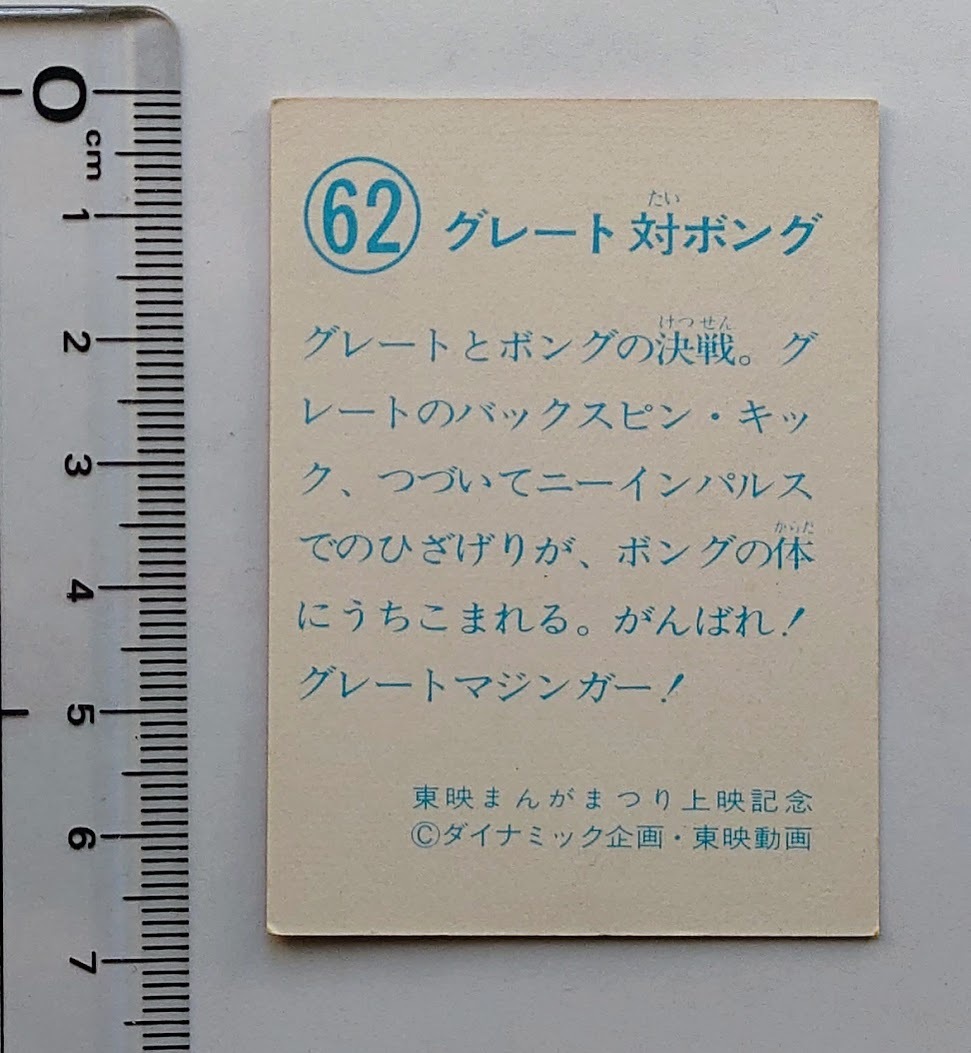 0
cm
1
2
3
4
5
6
7
62 グレート対ボング
たい
グレートとボングの決戦。グ
けつせん
レートのバックスピン・キッ
ク、つづいてニーインパルス
でのひざげりが、ボングの体
からだ
にうちこまれる。がんばれ!
グレートマジンガー!
東映まんがまつり上映記念
©ダイナミック企画・東映動画